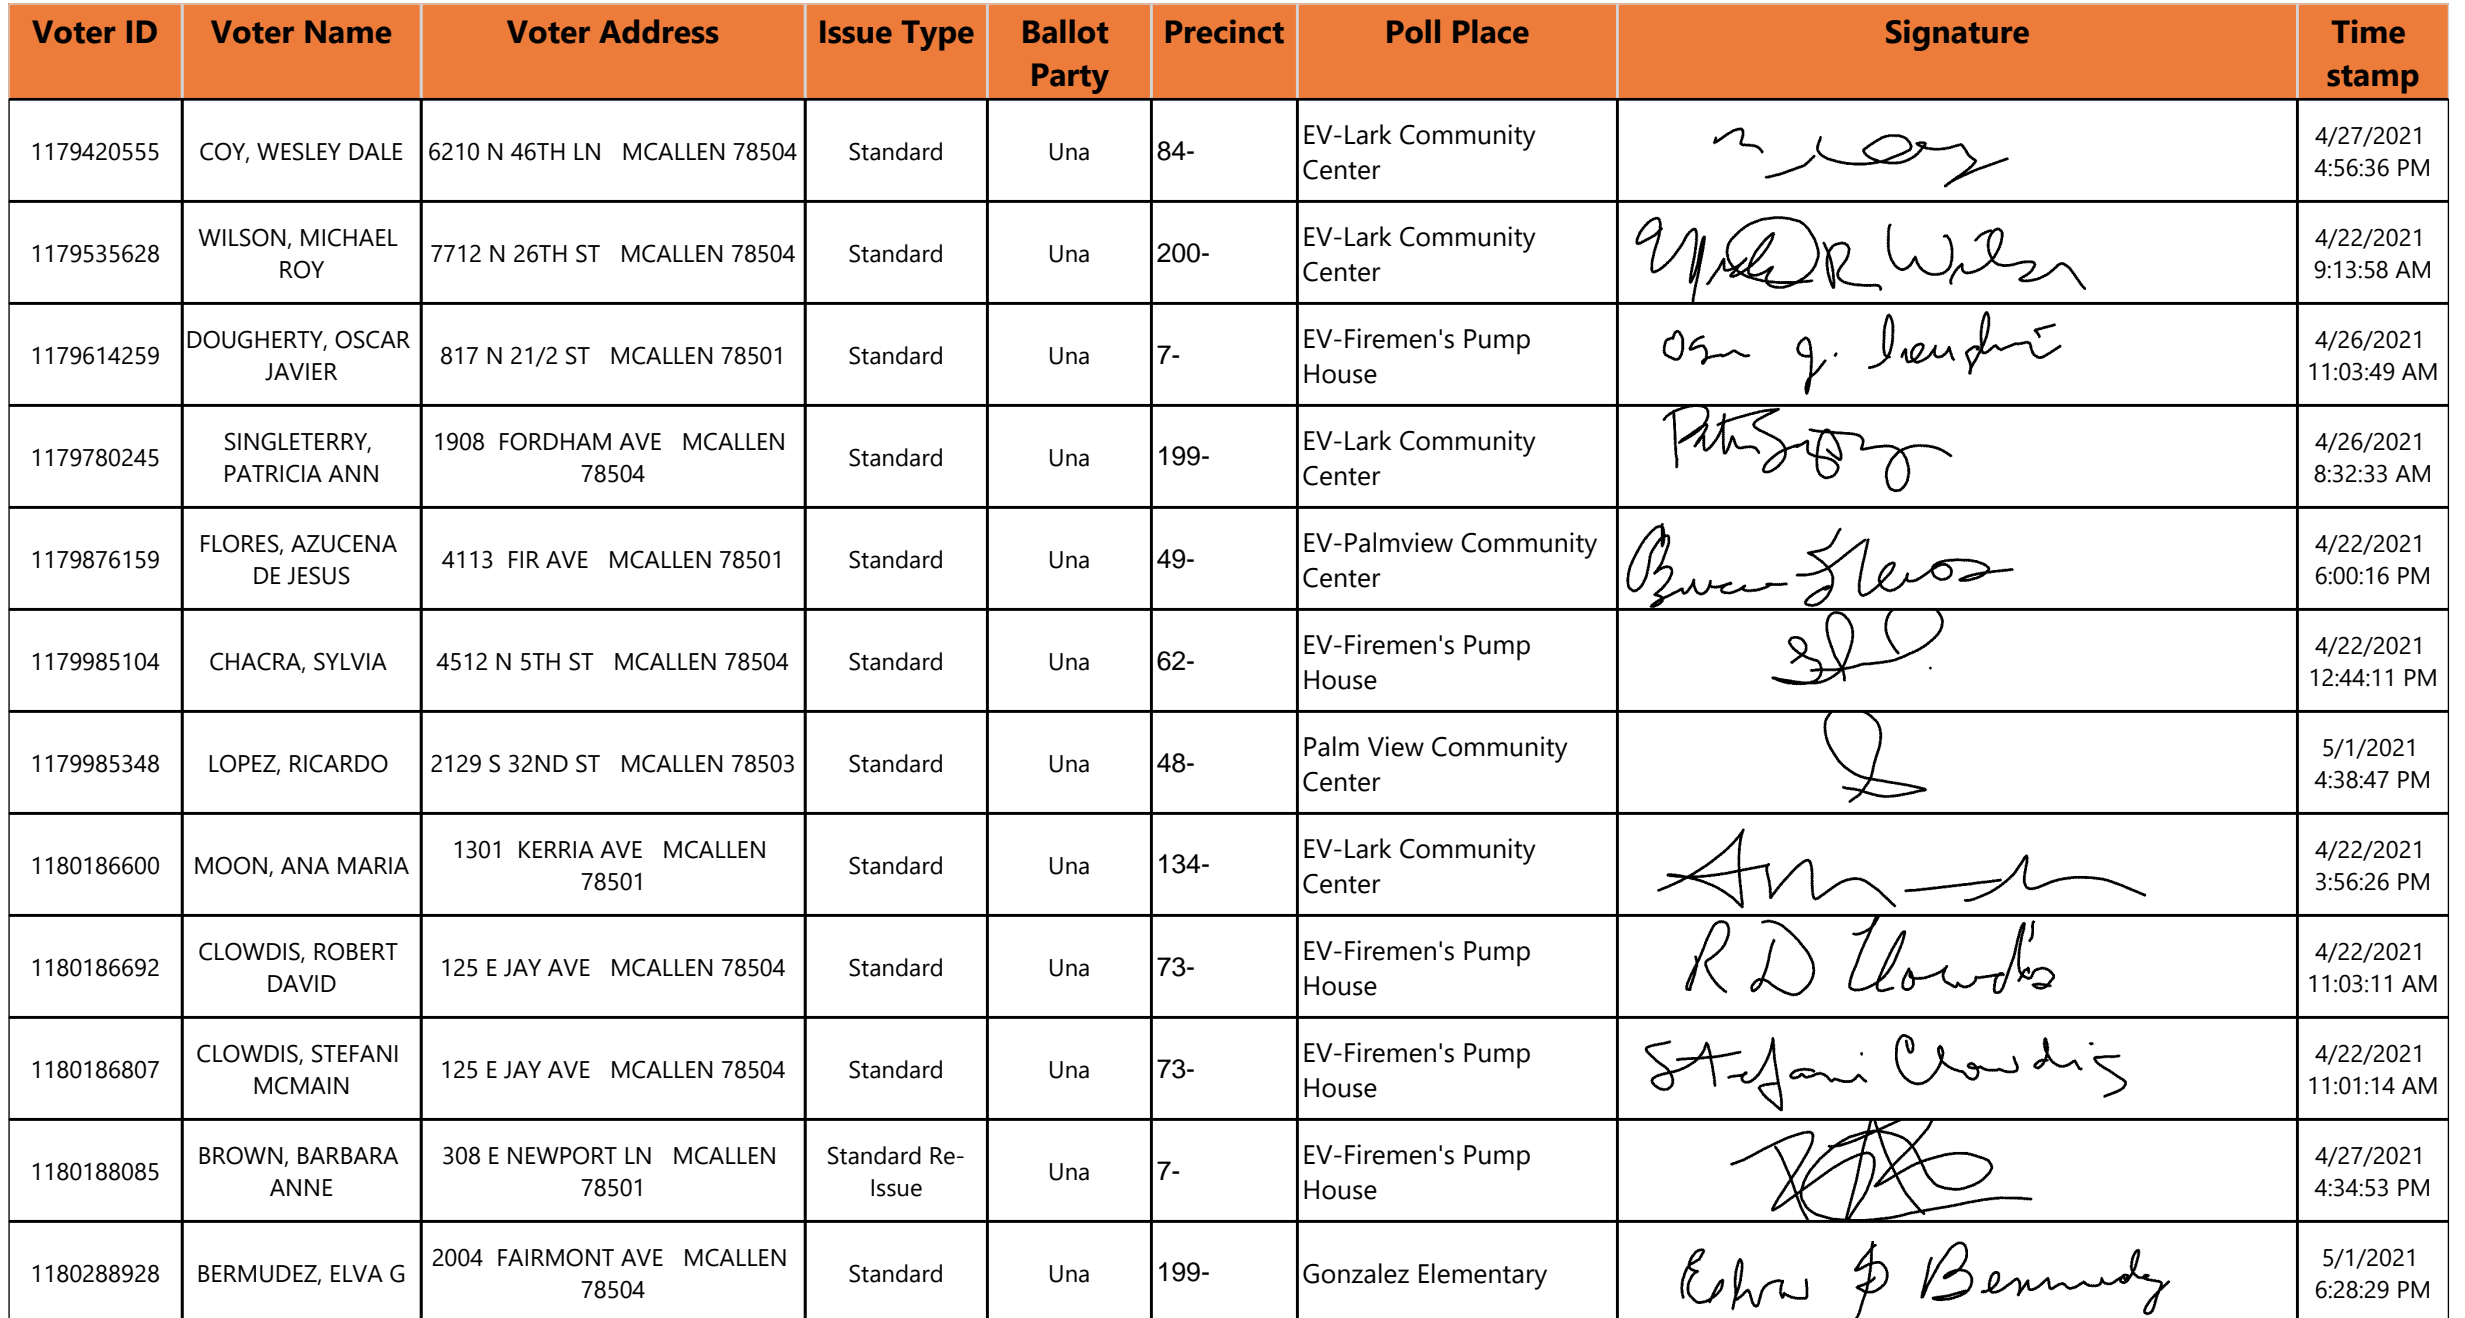 Voter ID Voter Name Voter Address Issue Type Ballot Party Precinct Poll Place Signature Time stamp
1179420555 COY, WESLEY DALE 6210 N 46TH LN MCALLEN 78504 Standard Una 84- EV-Lark Community Center 4/27/2021 4:56:36 PM
1179535628 WILSON, MICHAEL ROY 7712 N 26TH ST MCALLEN 78504 Standard Una 200- EV-Lark Community Center R Wilson 4/22/2021 9:13:58 AM
1179614259 DOUGHERTY, OSCAR JAVIER 817 N 21/2 ST MCALLEN 78501 Standard Una 7- EV-Firemen's Pump House 4/26/2021 11:03:49 AM
1179780245 SINGLETERRY, PATRICIA ANN 1908 FORDHAM AVE MCALLEN 78504 Standard Una 199- EV-Lark Community Center 4/26/2021 8:32:33 AM
1179876159 FLORES, AZUCENA DE JESUS 4113 FIR AVE MCALLEN 78501 Standard Una 49- EV-Palmview Community Center Flores 4/22/2021 6:00:16 PM
1179985104 CHACRA, SYLVIA 4512 N 5TH ST MCALLEN 78504 Standard Una 62- EV-Firemen's Pump House 4/22/2021 12:44:11 PM
1179985348 LOPEZ, RICARDO 2129 S 32ND ST MCALLEN 78503 Standard Una 48- Palm View Community Center 5/1/2021 4:38:47 PM
1180186600 MOON, ANA MARIA 1301 KERRIA AVE MCALLEN 78501 Standard Una 134- EV-Lark Community Center 4/22/2021 3:56:26 PM
1180186692 CLOWDIS, ROBERT DAVID 125 E JAY AVE MCALLEN 78504 Standard Una 73- EV-Firemen's Pump House R D Clowdis 4/22/2021 11:03:11 AM
1180186807 CLOWDIS, STEFANI MCMAIN 125 E JAY AVE MCALLEN 78504 Standard Una 73- EV-Firemen's Pump House Stefani Clowdis 4/22/2021 11:01:14 AM
1180188085 BROWN, BARBARA ANNE 308 E NEWPORT LN MCALLEN 78501 Standard Re-Issue Una 7- EV-Firemen's Pump House 4/27/2021 4:34:53 PM
1180288928 BERMUDEZ, ELVA G 2004 FAIRMONT AVE MCALLEN 78504 Standard Una 199- Gonzalez Elementary Elva G Bermudez 5/1/2021 6:28:29 PM